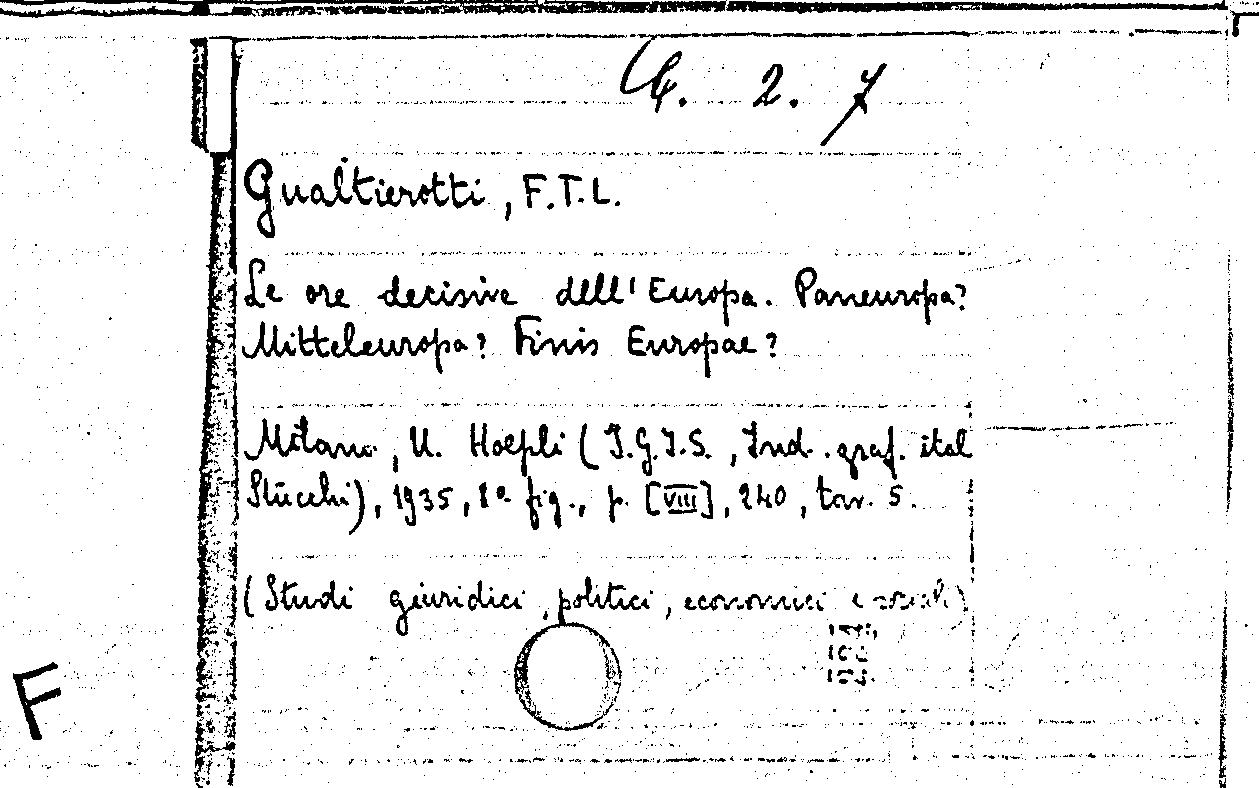 2. 7
Gualtierotti, F.T.L.
Le ore decisive dell'Europa. Paneuropa?
Mitteleuropa? Finis Europae?
Milano, U. Hoepli (I.G.I.S., Ind. graf. ital
Stucchi), 1935, 8° fig., p. [VIII], 240, tav. 5.
(Studi giuridici, politici, economici e sociali)
F